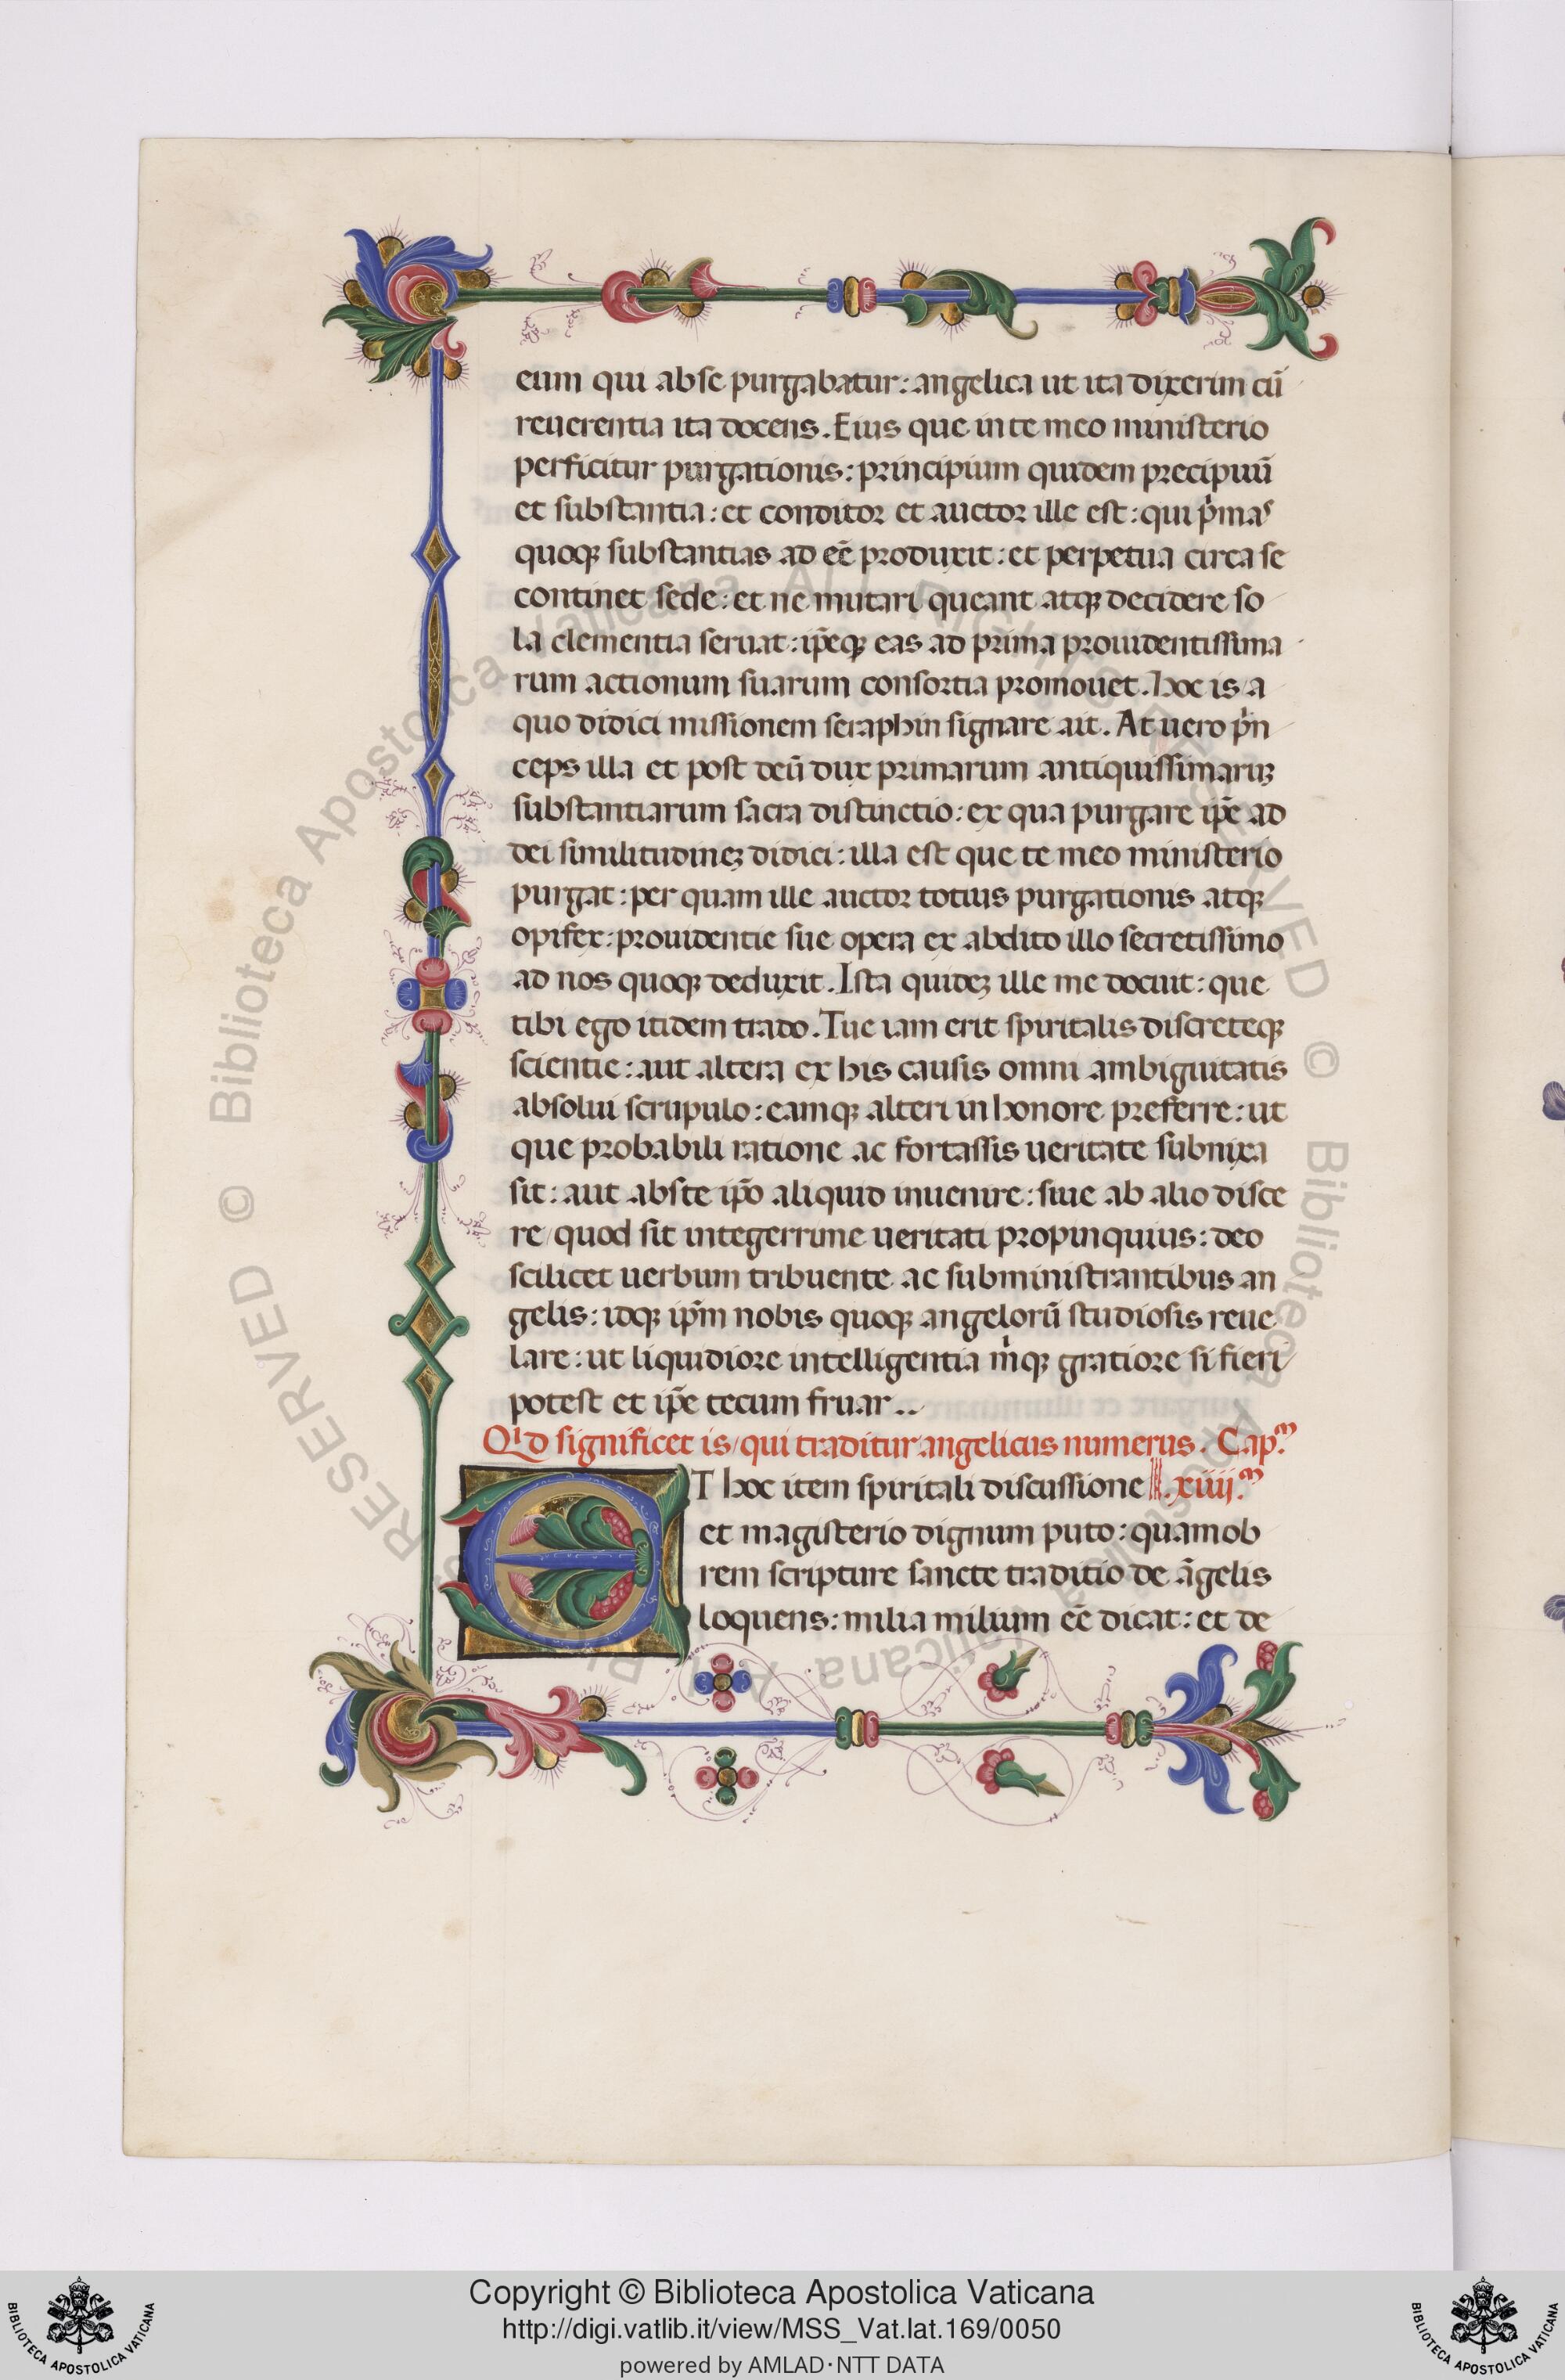 eum qui abse purgabatur: angelica ut ita dixerim cū
reuerentia ita docens. Eius que in te meo ministerio
perficitur purgationis: principium quidem precipuū
et substantia: et conditor et auctor ille est: qui p̍mas
quoqꝫ substantias ad eē produxit: et perpetua circa se
continet sede: et ne mutari queant atqꝫ decidere so
la clementia seruat: ip̄eqꝫ eas ad prima prouidentissima
rum actionum suarum consortia promouet. Hoc is a
quo didici missionem seraphin signare ait. At uero p̍n
ceps illa et post deū dux primarum antiquissimaruꝫ
substantiarum sacra distinctio: ex qua purgare ip̄e ad
dei similitudineꝫ didici: illa est que te meo ministerio
purgat: per quam ille auctor totius purgationis atqꝫ
opifex: prouidentie sue opera ex abdito illo secretissimo
ad nos quoqꝫ deduxit. Ista quideꝫ ille me docuit: que
tibi ego itidem trado. Tue iam erit spiritalis discreteqꝫ
scientie: aut altera ex his causis omni ambiguitatis
absolui scrupulo: eamqꝫ alteri in honore preferre: ut
que probabili ratione ac fortassis ueritate subnixa
sit: aut abste ip̄o aliquid inuenire: siue ab alio disce
re/quod sit integerrime ueritati propinquius: deo
scilicet uerbum tribuente ac subministrantibus an
gelis: idqꝫ ip̄m nobis quoqꝫ angelorū studiosis reue
lare: ut liquidiore intelligentia m̍qꝫ gratiore si fieri
potest et ip̄e tecum fruar..
Qıd significet is/qui traditur angelicus numerus. Cap.ᵐ
ET hoc item spiritali discussione .xiiii.ᵐ
et magisterio dignum puto: quamob
rem scripture sancte traditio de āgelis
loquens: milia milium eē dicat: et de
© Biblioteca Apostolica Vaticana ALL RIGHTS RESERVED
Copyright © Biblioteca Apostolica Vaticana
http://digi.vatlib.it/view/MSS_Vat.lat.169/0050
powered by AMLAD·NTT DATA
BIBLIOTECA APOSTOLICA VATICANA
BIBLIOTECA APOSTOLICA VATICANA